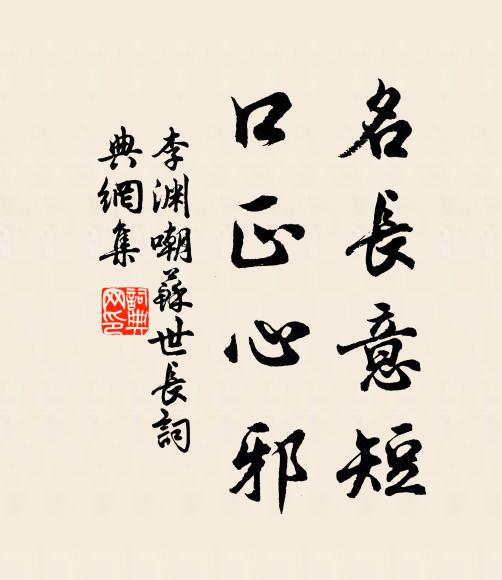 名長意短
口正心邪
李淵嘲蘇世長詞
典網集
詞典
网印